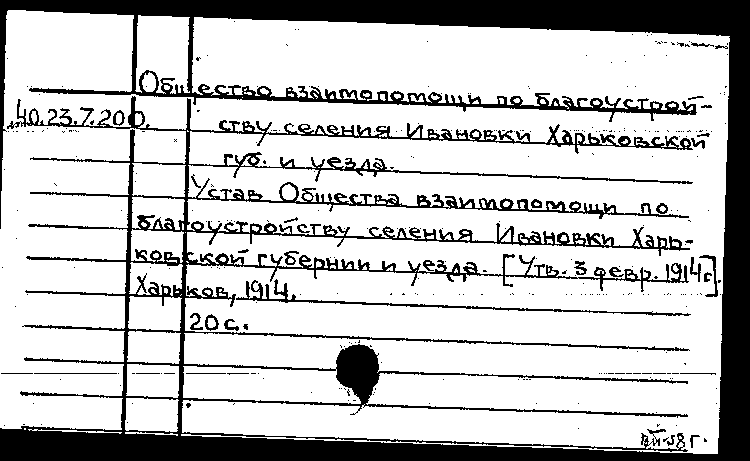 Общество взаимопомощи по благоустрой-
40.23.7.200. ству селения Ивановки Харьковской
губ. и уезда.
Устав Общества взаимопомощи по
благоустройству селения Ивановки Харь-
ковской губернии и уезда. [Утв. 3 февр. 1914 г.].
Харьков, 1914.
20 с.
58 г.